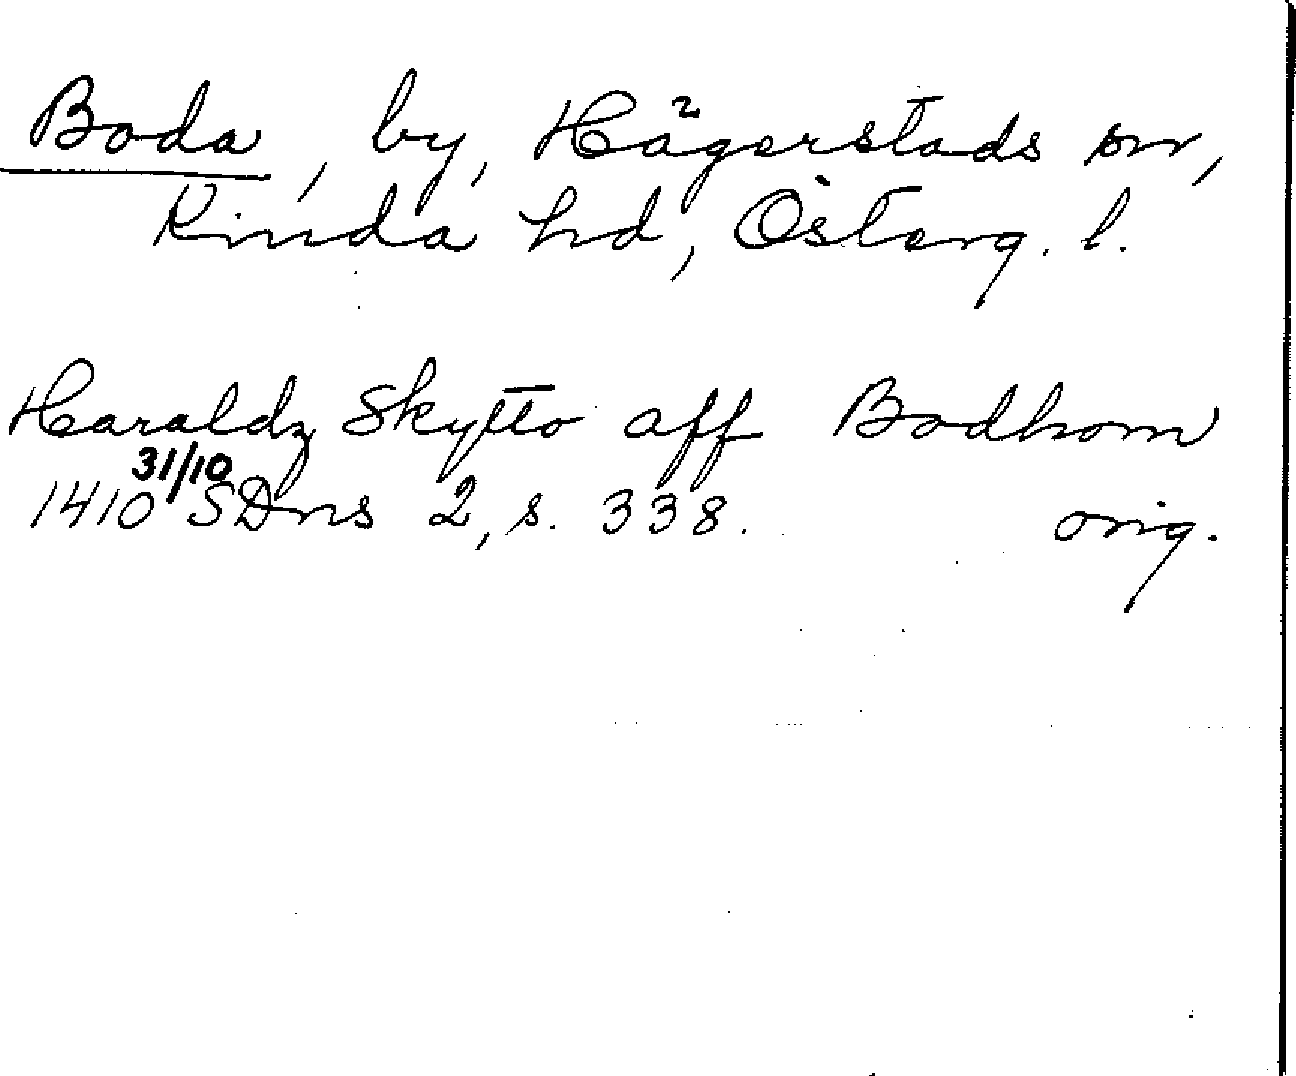 Boda, by, Hägerstads sn,
Kinda hd, Österg. l.
Haraldz Skytto aff Bodhom
31/10
1410 SDns 2, s. 338. orig.